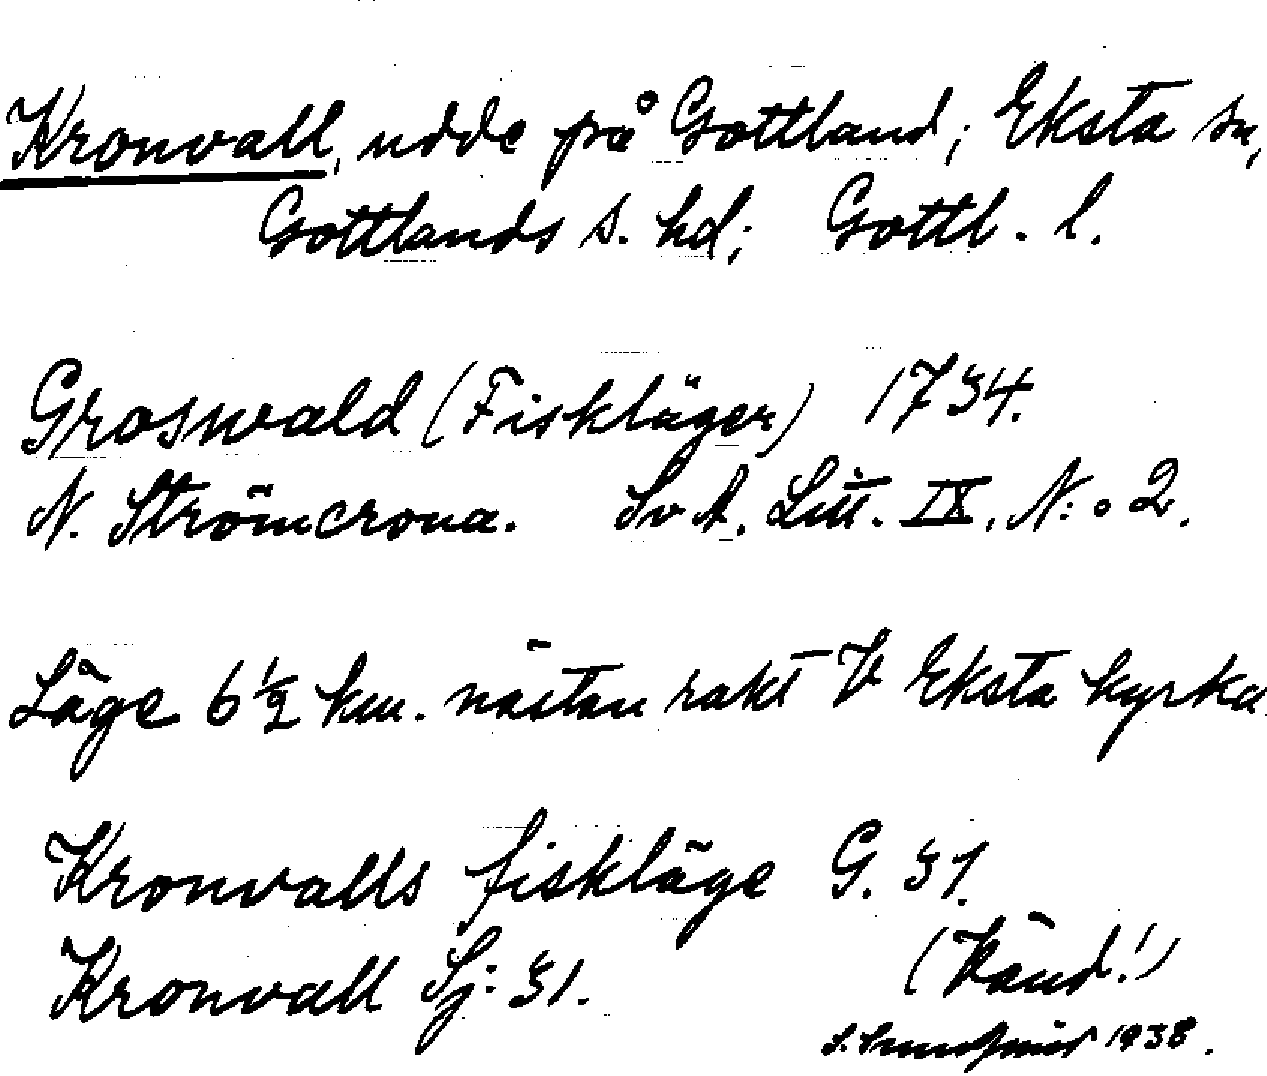 Kronvall, udde på Gottland; Eksta sn,
Gottlands s. hd; Gottl. l.
Groswald (Fiskläger) 1734.
N. Strömcrona. Sv A. Litt. IX, N:o 2.
Läge 6 1/2 km. nästan rakt V Eksta kyrka
Kronvalls fiskläge G. 31.
Kronvall Sj: 31.
(Känd!)
1938.